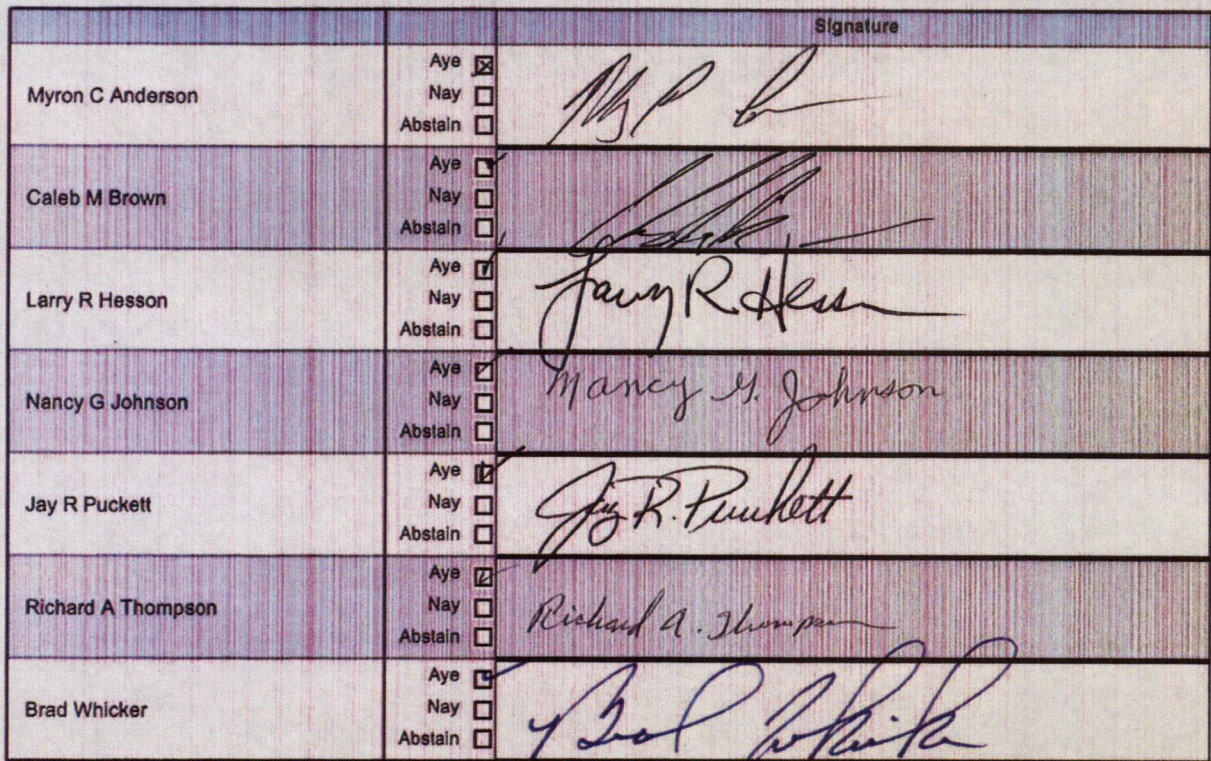 Signature
Myron C Anderson
Aye
Nay
Abstain
Caleb M Brown
Aye
Nay
Abstain
Larry R Hesson
Aye
Nay
Abstain
Larry R. Hesson
Nancy G Johnson
Aye
Nay
Abstain
Nancy G. Johnson
Jay R Puckett
Aye
Nay
Abstain
Jay R. Puckett
Richard A Thompson
Aye
Nay
Abstain
Richard A. Thompson
Brad Whicker
Aye
Nay
Abstain
Brad Whicker